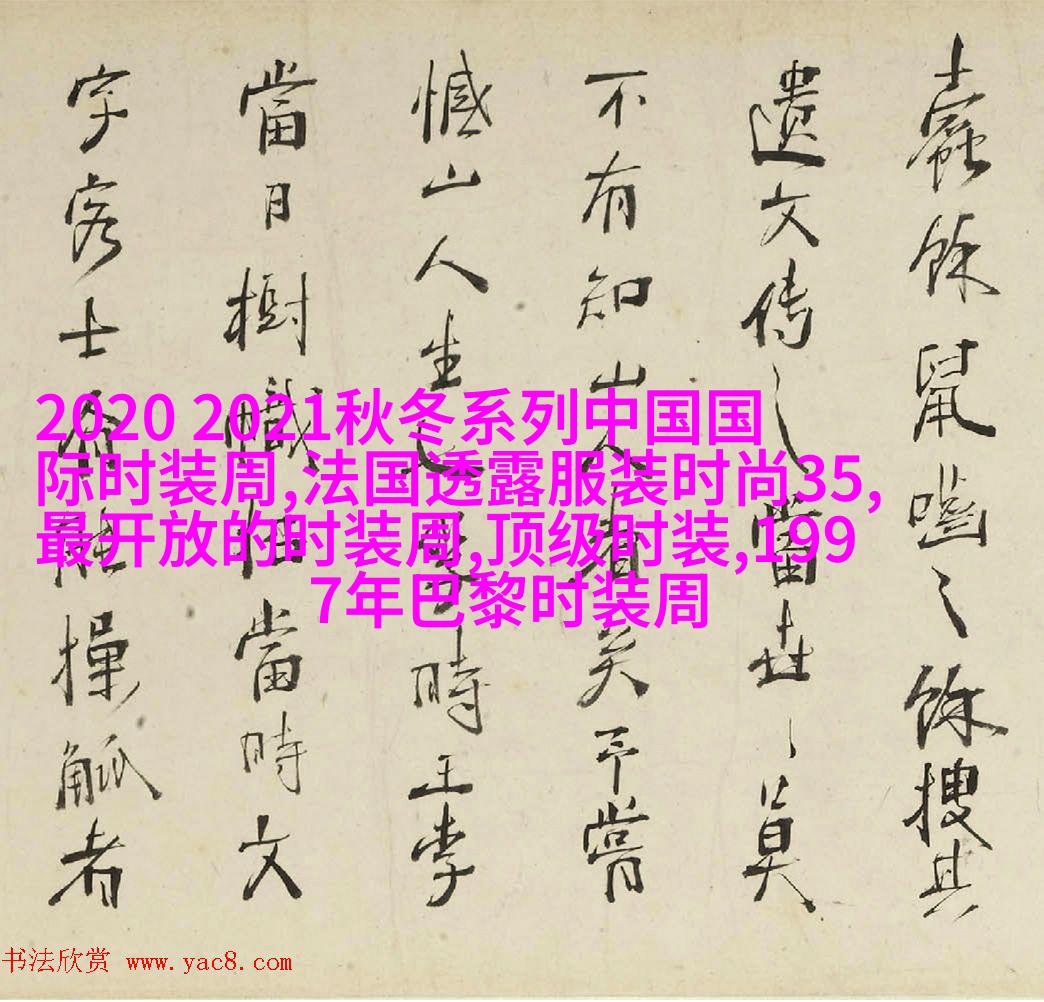 蠹餘鼠嚙之餘搜其
遺文傳之當世之莫
不有知山人者矣予嘗
憾山人生時王李
當日樹幟當時文
字客士有能操觚者
2020 2021秋冬系列中国国
际时装周,法国透露服装时尚35,
最开放的时装周,顶级时装,199
7年巴黎时装周
书法欣赏 www.yac8.com